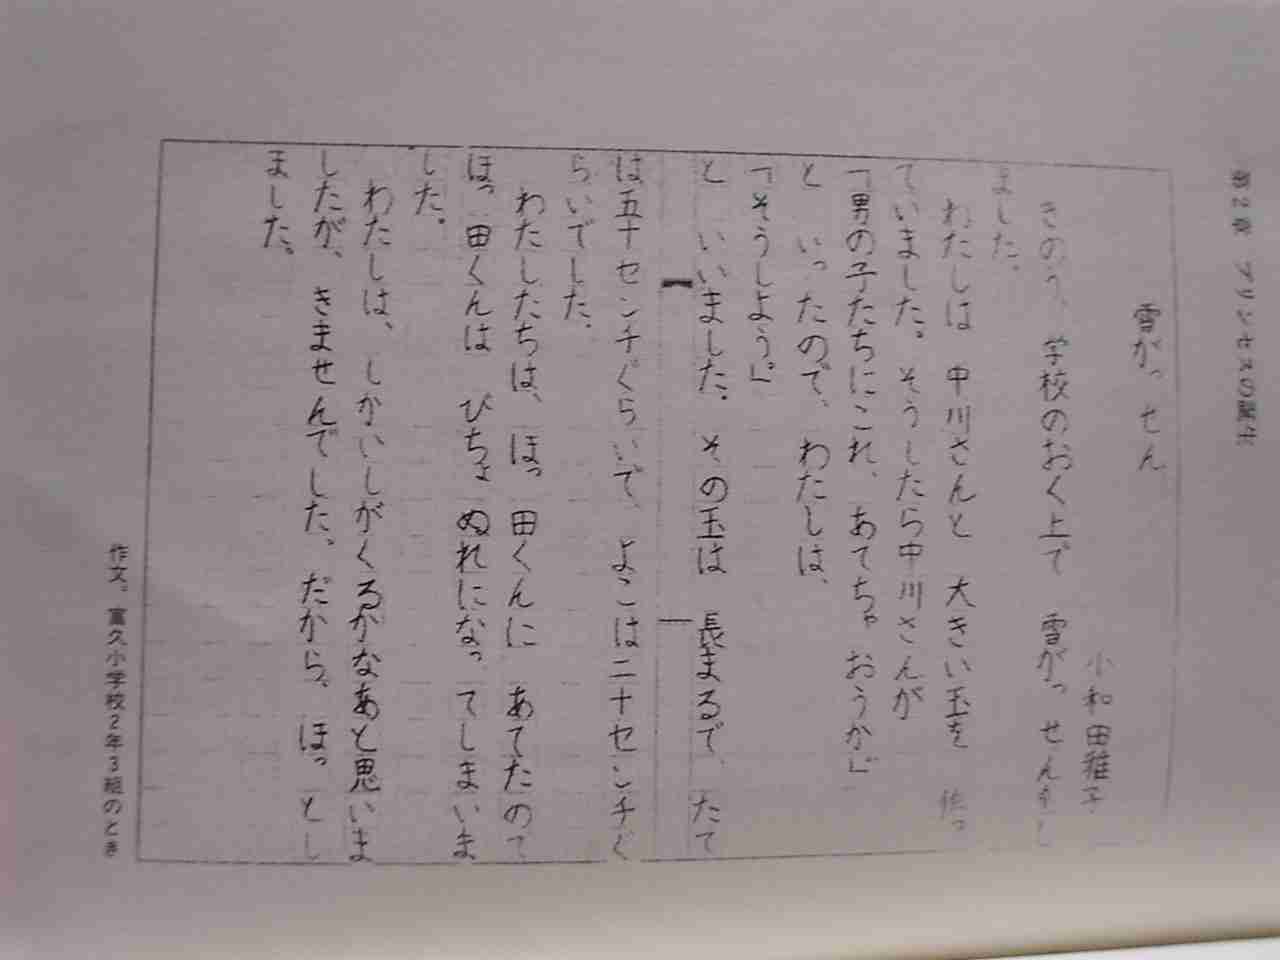 第2章 プリンセスの誕生
雪がっせん
小和田雅子
きのう、学校のおく上で 雪がっせんをし
ました。
わたしは 中川さんと 大きい玉を 作っ
ていました。そうしたら中川さんが
「男の子たちにこれ、あてちゃおうか」
と いったので、わたしは、
「そうしよう。」
と いいました。その玉は 長まるで、たて
は五十センチぐらいで、よこは二十センチぐ
らいでした。
わたしたちは、ほっ田くんに あてたので
ほっ田くんは びちょぬれになってしまいま
した。
わたしは、しかいしがくるかなあと思いま
したが、きませんでした。だから、ほっとし
ました。
作文。富久小学校2年3組のとき